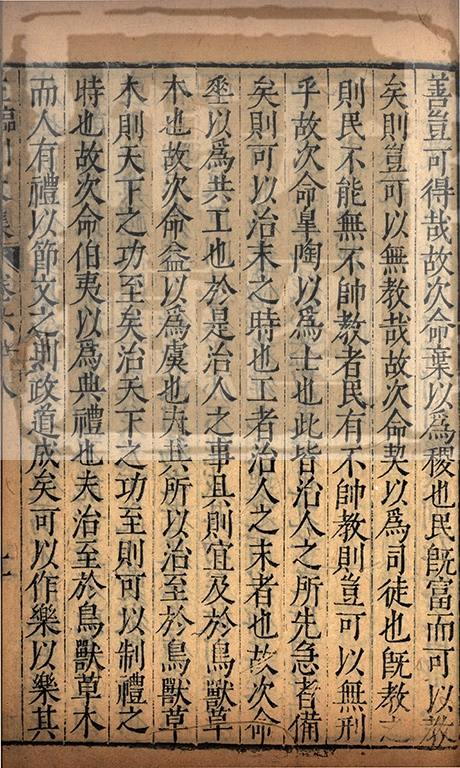 善豈可得哉故次命棄以爲稷也民旣富而可以教
矣則豈可以無教哉故次命契以爲司徒也旣教之
則民不能無不帥教者民有不帥教則豈可以無刑
乎故次命皐陶以爲士也此皆治人之所先急者備
矣則可以治末之時也工者治人之末者也故次命
埀以爲共工也於是治人之事具則宜及於鳥獸草
木也故次命益以爲虞也夫其所以治至於鳥獸草
木則天下之功至矣治天下之功至則可以制禮之
時也故次命伯夷以爲典禮也夫治至於鳥獸草木
而人有禮以節文之則政道成矣可以作樂以樂其
王臨川文集 卷六十八